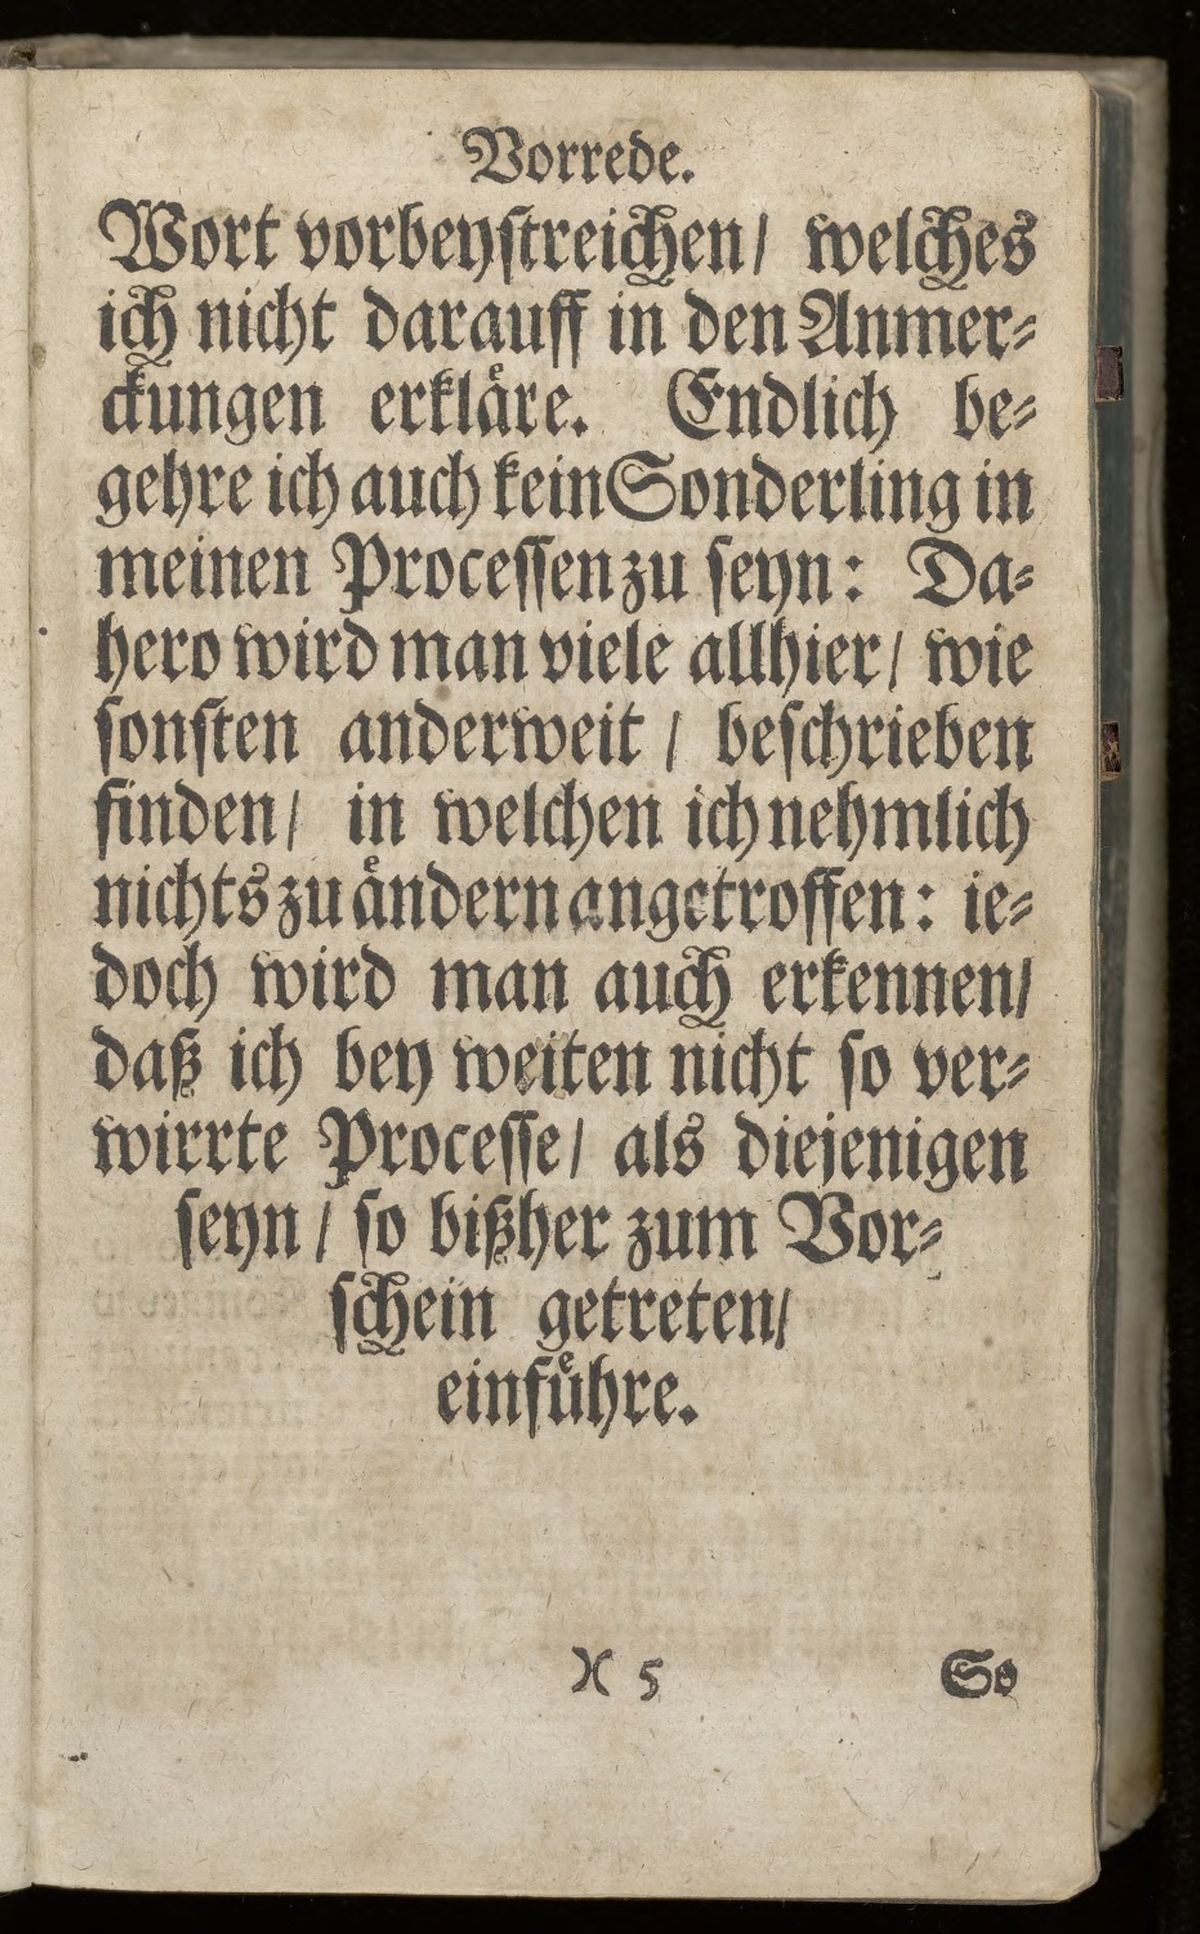 Vorrede.
Wort vorbeyſtreichen/ welches
ich nicht darauff in den Anmer⸗
ckungen erklaͤre. Endlich be⸗
gehre ich auch kein Sonderling in
meinen Proceſſen zu ſeyn: Da⸗
hero wird man viele allhier/ wie
ſonſten anderweit / beſchrieben
finden/ in welchen ich nehmlich
nichts zu aͤndern angetroffen: ie⸗
doch wird man auch erkennen/
daß ich bey weiten nicht ſo ver⸗
wirrte Proceſſe/ als diejenigen
ſeyn / ſo bißher zum Vor⸗
ſchein getreten/
einfuͤhre.
)( 5 So